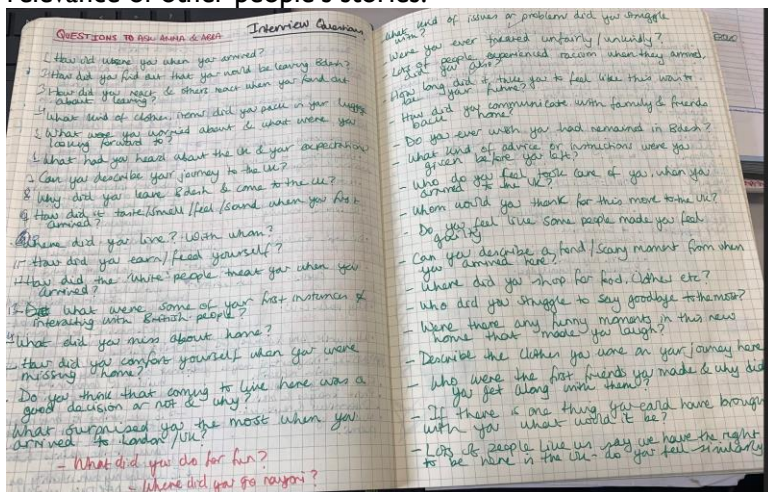 relevance of other people's stories.
Interview Questions
QUESTIONS TO ASK AMMA & ABBA
1. How old were you when you arrived?
2 How did you find out that you would be leaving Bdesh?
3 How did you react & others react when you found out
about leaving?
4 What kind of clothes, items did you pack in your luggage
5 What were you worried about & what were you
looking forward to?
6 What had you heard about the UK & your expectations
7 Can you describe your journey to the UK?
8 Why did you leave Bdesh & come to the UK?
9 How did it taste/smell/feel/sound when you first
arrived?
Where did you live? With whom?
11 How did you earn/feed yourself?
How did the "white" people treat you when you
arrived?
13 what were some of your first instances of
interacting with British people?
14 What did you miss about home?
How did you comfort yourself when you were
missing home?
Do you think that coming to live here was a
good decision or not & why?
What surprised you the most when you
arrived to London/UK?
- What did you do for fun?
- Where did you go
What kind of issues or problems did you struggle
with?
Were you ever treated unfairly/unkindly?
- Lots of people experienced racism when they arrived,
did you
How long did it take you to feel like this would
be your future?
- How did you communicate with family & friends
back home?
- Do you ever wish you had remained in Bdesh?
- What kind of advice or instructions were you
given before you left?
- Who do you feel took care of you, when you
arrived to the UK?
- Whom would you thank for this move to the UK?
- Do you feel like some people made you feel
guilty
- Can you describe a fond/scary moment from when
you arrived here?
- Where did you shop for food, clothes etc?
- Who did you struggle to say goodbye to the most?
- Were there any funny moments in this new
home that made you laugh?
- Describe the clothes you wore on your journey here
- Who were the first friends you made & why did
you get along with them?
- If there is one thing you could have brought
with you what would it be?
- Lots of people like us say we have the right
to be here in the UK - do you feel similarly